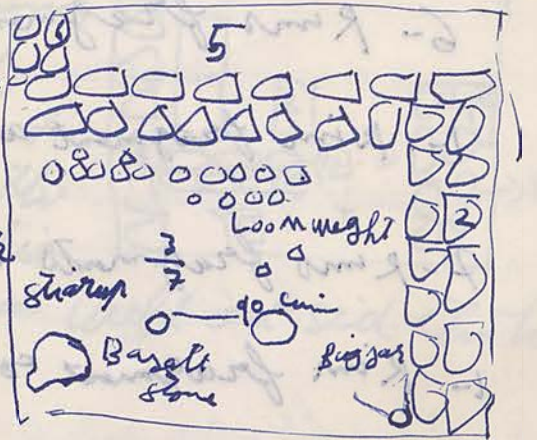 5
Loom weight
2
3
7
90 cm
Basalt
stone
Big jar